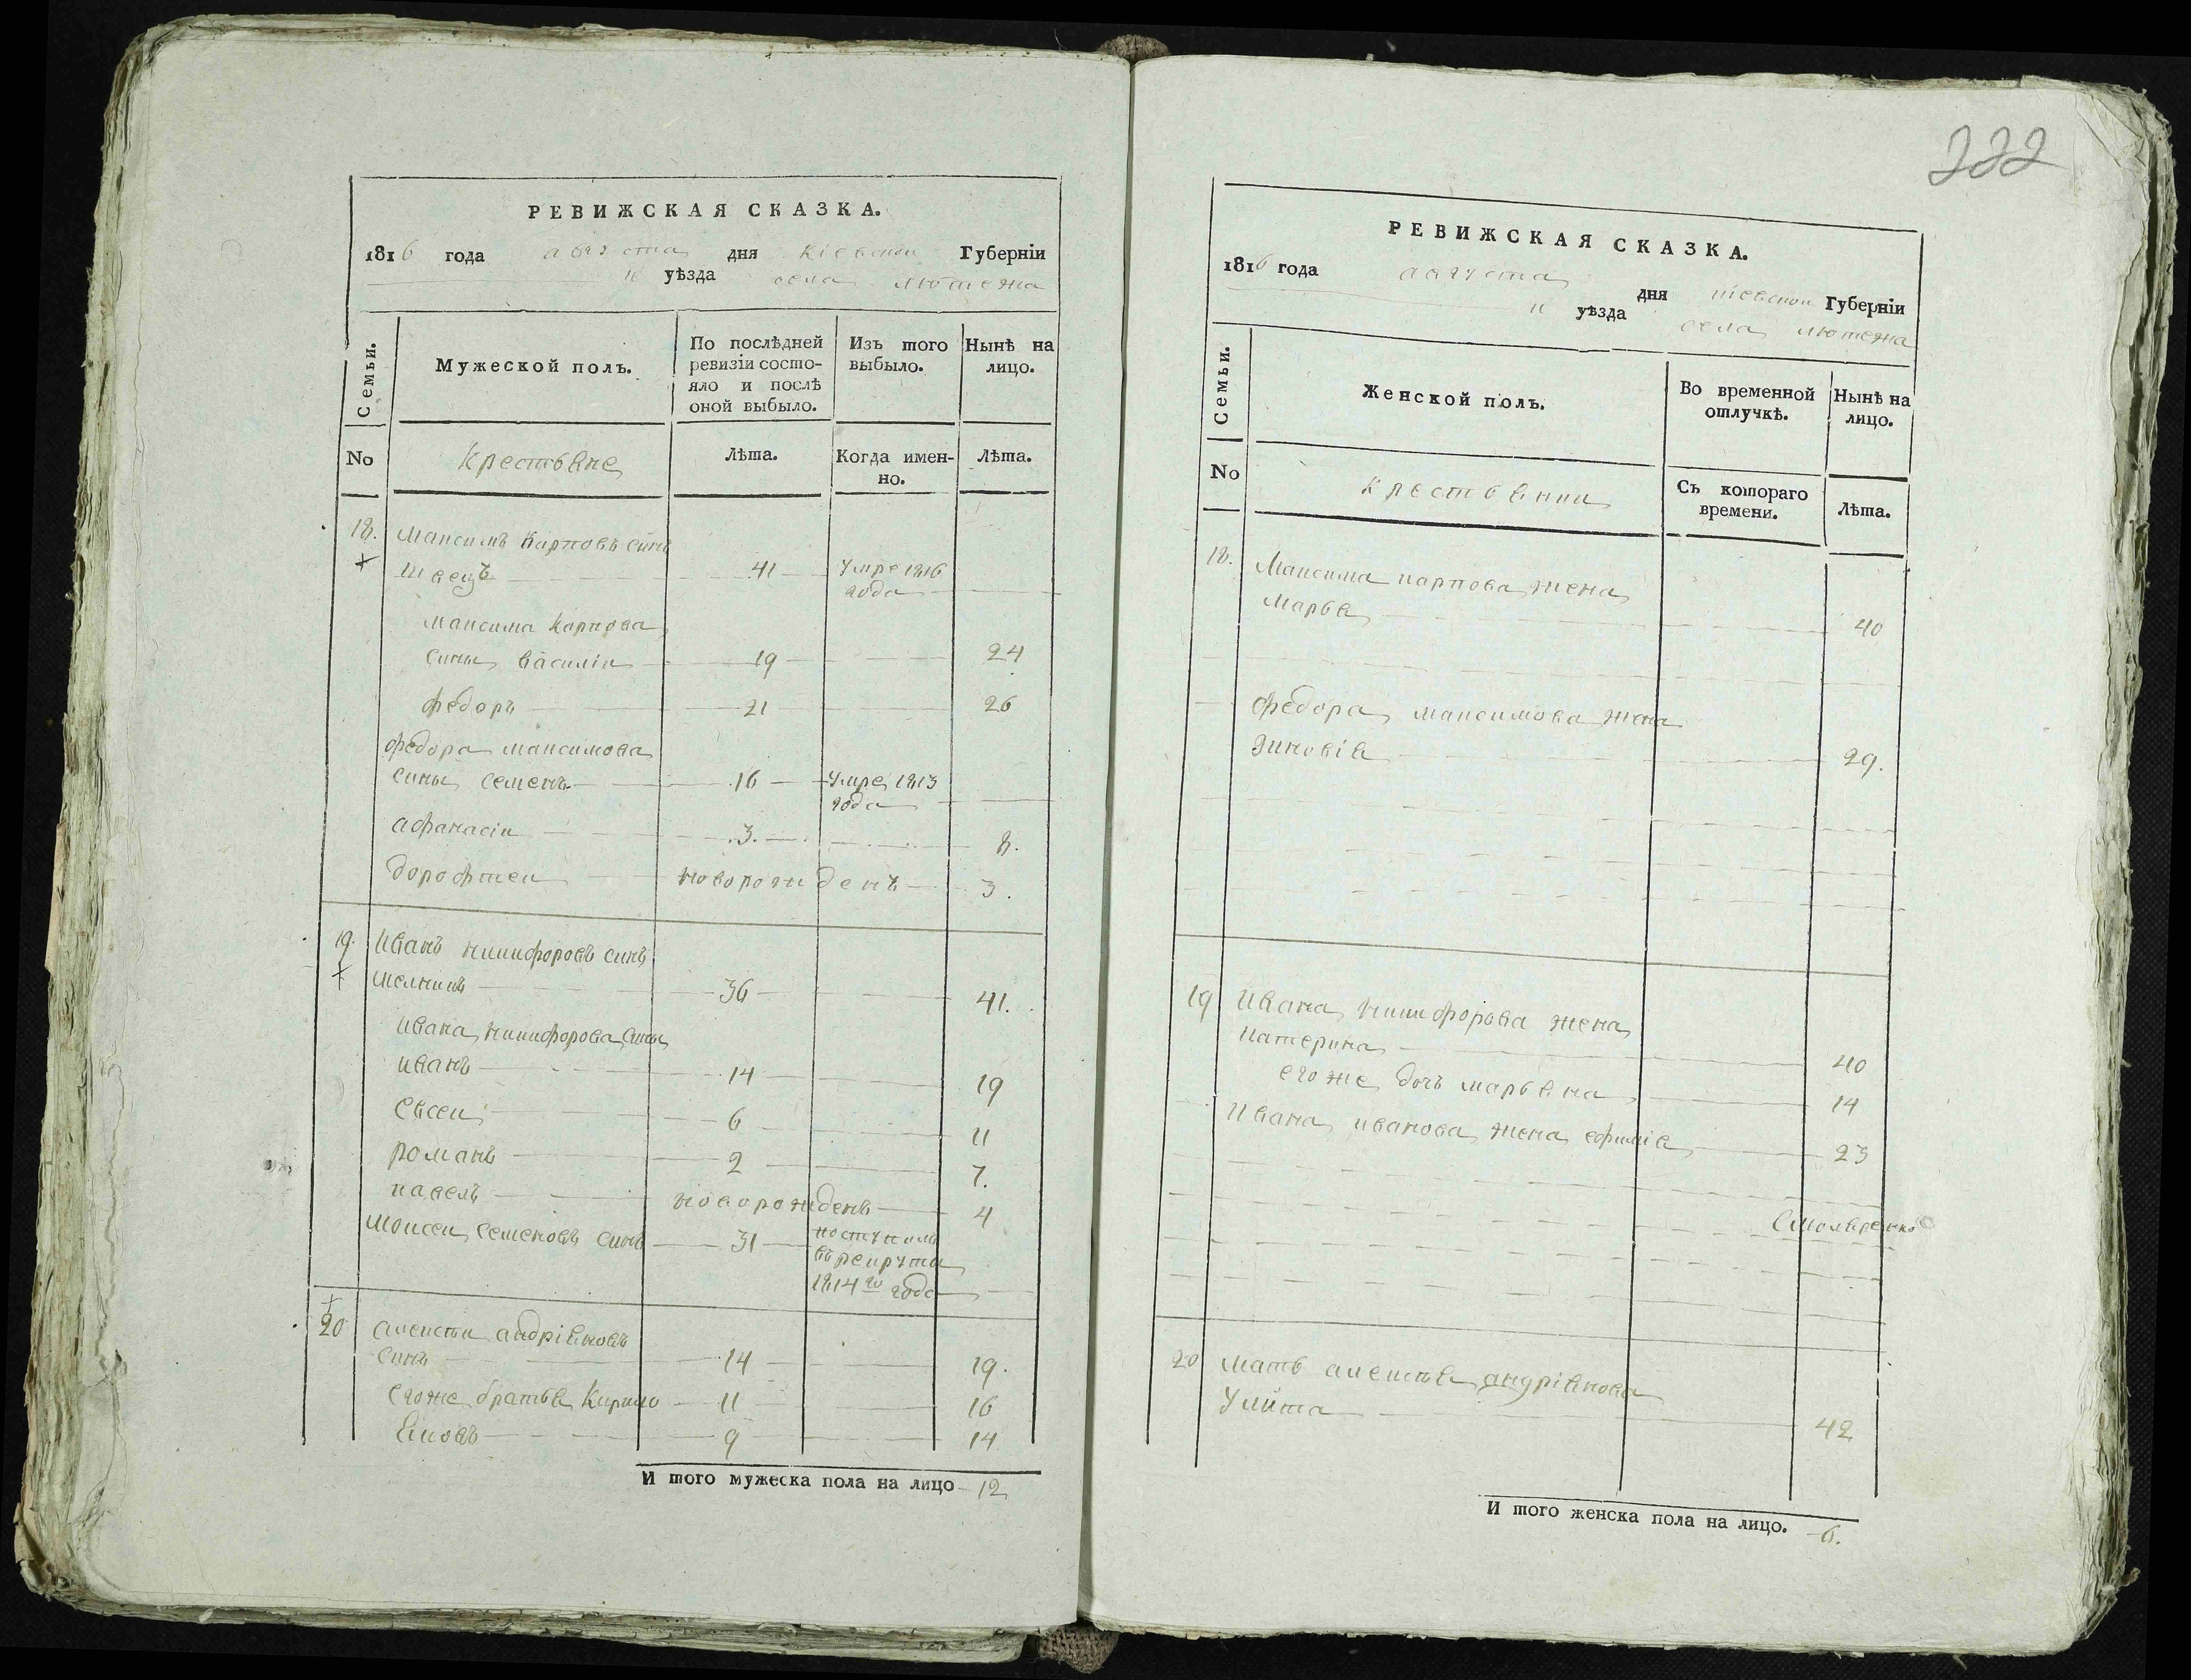 222
РЕВИЖСКАЯ СКАЗКА.
1816 года августа дня Кіевской Губерніи
и уѣзда села Лютежа
Семьи.
Мужеской полъ.
По послѣдней ревизіи состояло и послѣ оной выбыло.
Изъ того выбыло.
Нынѣ на лицо.
No
Крестьяне
Лѣта.
Когда именно.
Лѣта.
18. Максимъ Карповъ синъ
Швецъ 41 Умре 1816
года
Максима Карпова
сины Василіи 19 24
Федоръ 21 26
Федора Максимова
сины Семенъ 16 Умре 1813
года
Афанасіи 3. 8.
Дорофтеи новорожденъ 3.
19. Иванъ Никифоровъ синъ
Мелникъ 36 41.
Ивана Никифорова сины
Иванъ 14 19
Евсеи 6 11
Романъ 2 7.
Павелъ новорожденъ 4
Моисеи Семеновъ синъ 31 поступилъ
въ рекрута
1814го года
20 Алексѣи Андріяновъ
синъ 14 19.
Егоже братья Кирило 11 16
Яковъ 9 14
И того мужеска пола на лицо 12
РЕВИЖСКАЯ СКАЗКА.
1816 года августа дня Кіевской Губерніи
и уѣзда села Лютежа
Семьи.
Женской полъ.
Во временной отлучкѣ.
Нынѣ на лицо.
No
Крестьянки
Съ котораго времени.
Лѣта.
18. Максима Карпова жена
Марья 40
Федора Максимова жена
Зиновія 29.
19 Ивана Никифорова жена
Катерина 40
Егоже дочъ Марьяна 14
Ивана Иванова жена Ефимія 23
20 Мать Алексѣя Андріянова
Улита 42
И того женска пола на лицо. 6.